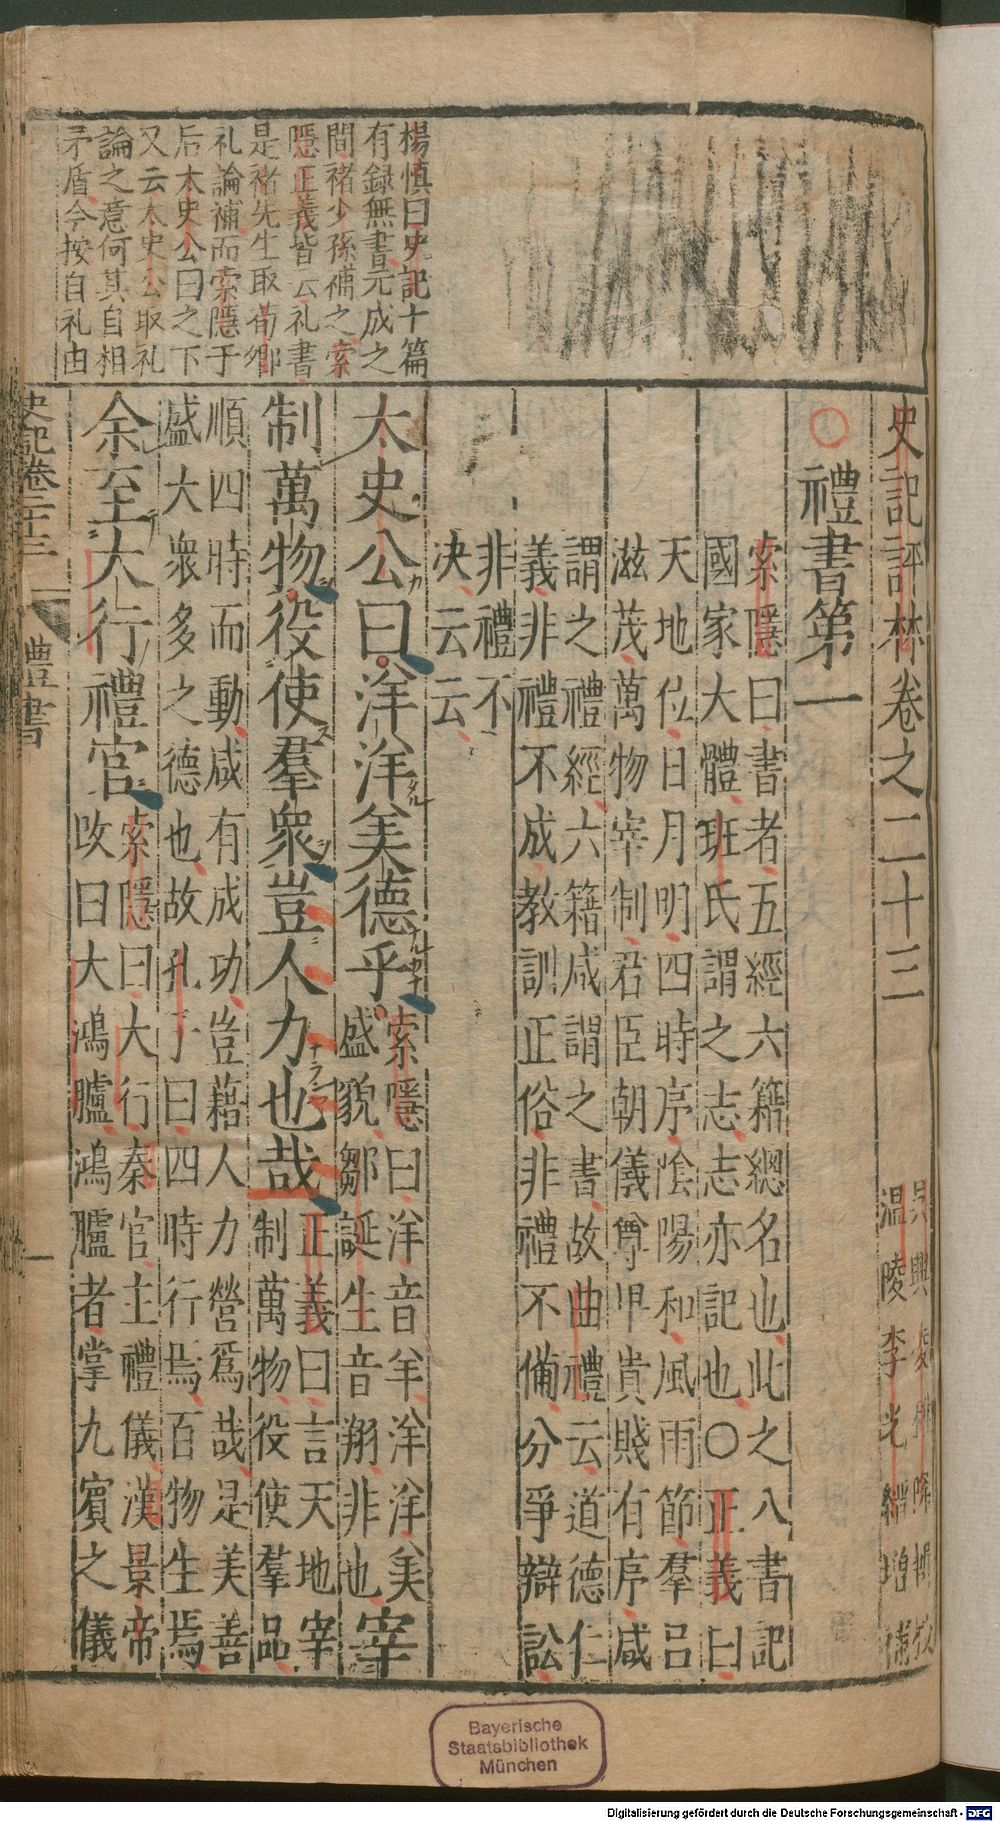 史記評林卷之二十三
吳興凌稚隆輯校
溫陵李光縉增補
○禮書第一
索隱曰書者五經六籍總名也此之八書記
國家大體班氏謂之志志亦記也○正義曰
天地位日月明四時序陰陽和風雨節羣品
滋茂萬物宰制君臣朝儀尊卑貴賤有序咸
謂之禮經六籍咸謂之書故曲禮云道德仁
義非禮不成教訓正俗非禮不備分爭辯訟
非禮不
決云云
太史公曰洋洋美德乎
索隱曰洋音羊洋洋美
盛貌鄒誕生音翔非也
宰
制萬物役使羣衆豈人力也哉
正義曰言天地宰
制萬物役使羣品
順四時而動咸有成功豈藉人力營爲哉是美善
盛大衆多之德也故孔子曰四時行焉百物生焉
余至大行禮官
索隱曰大行秦官主禮儀漢景帝
改曰大鴻臚鴻臚者掌九賓之儀
楊慎曰史記十篇
有録無書元成之
間褚少孫補之索
隱正義皆云礼書
是褚先生取荀卿
礼論補而索隱于
后太史公曰之下
又云太史公取礼
論之意何其自相
矛盾今按自礼由
史記卷二十三
禮書
一
Bayerische
Staatsbibliothek
München
Digitalisierung gefördert durch die Deutsche Forschungsgemeinschaft - DFG